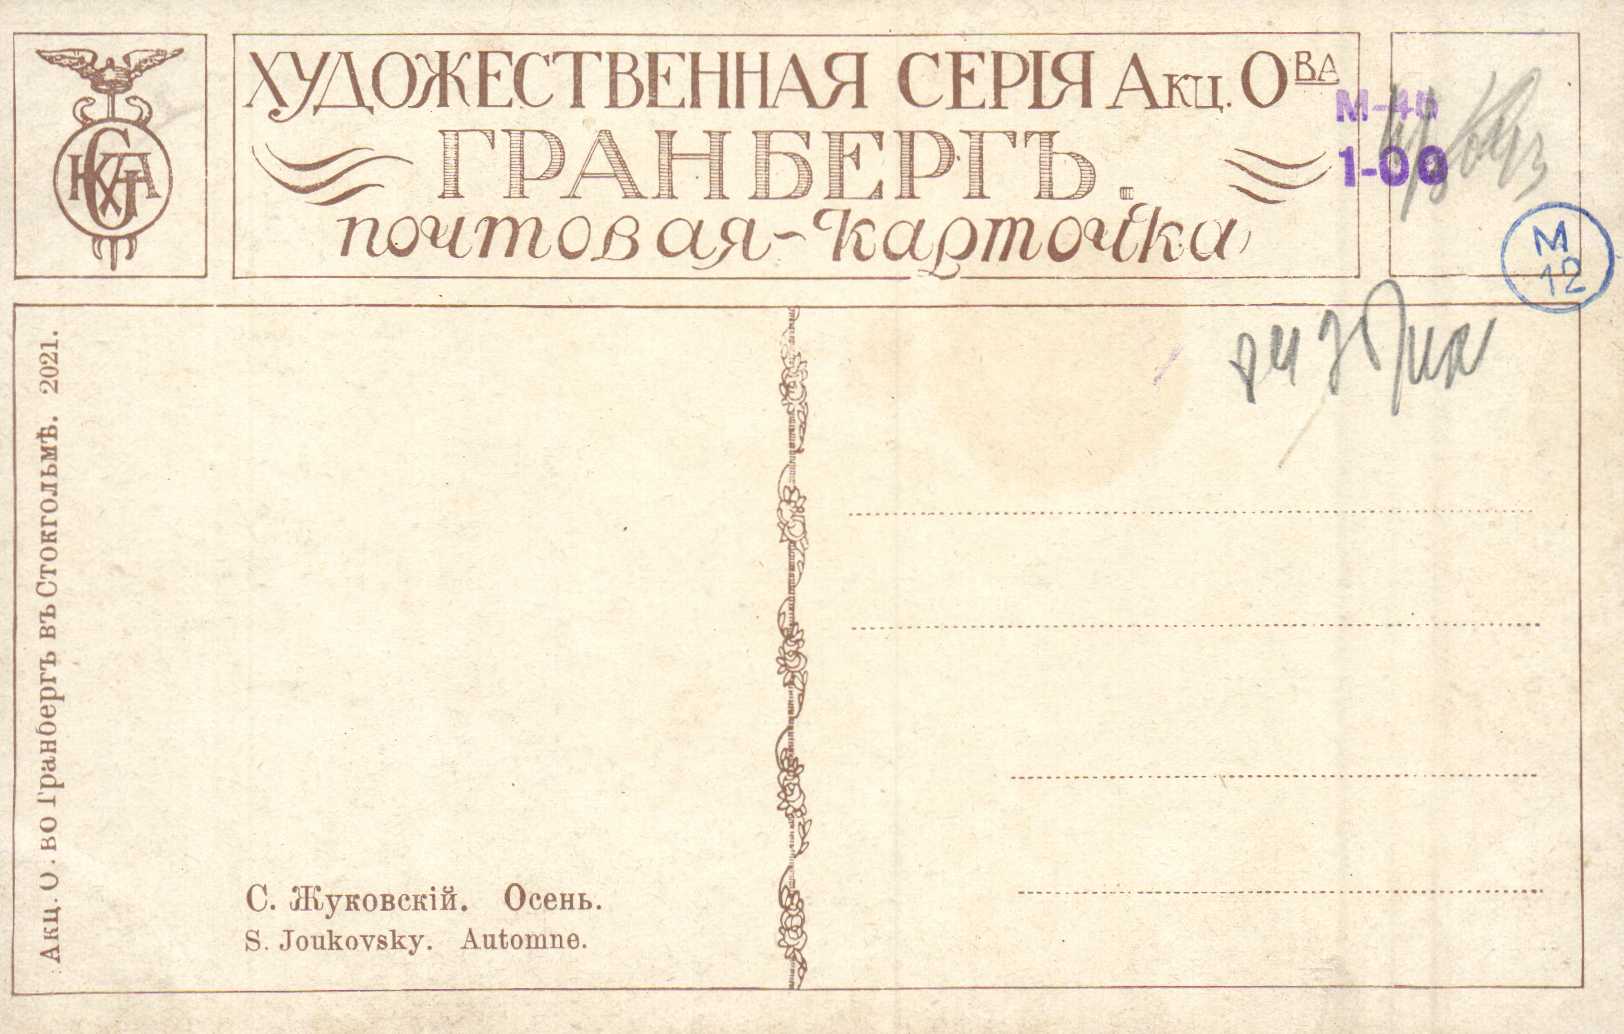 ХУДОЖЕСТВЕННАЯ СЕРІЯ Акц. Ова
ГРАНБЕРГЪ.
почтовая-карточка
М-45
1-00
М
12
Акц. О. во Гранбергъ въ Стокгольмѣ. 2021.
С. Жуковскій. Осень.
S. Joukovsky. Automne.